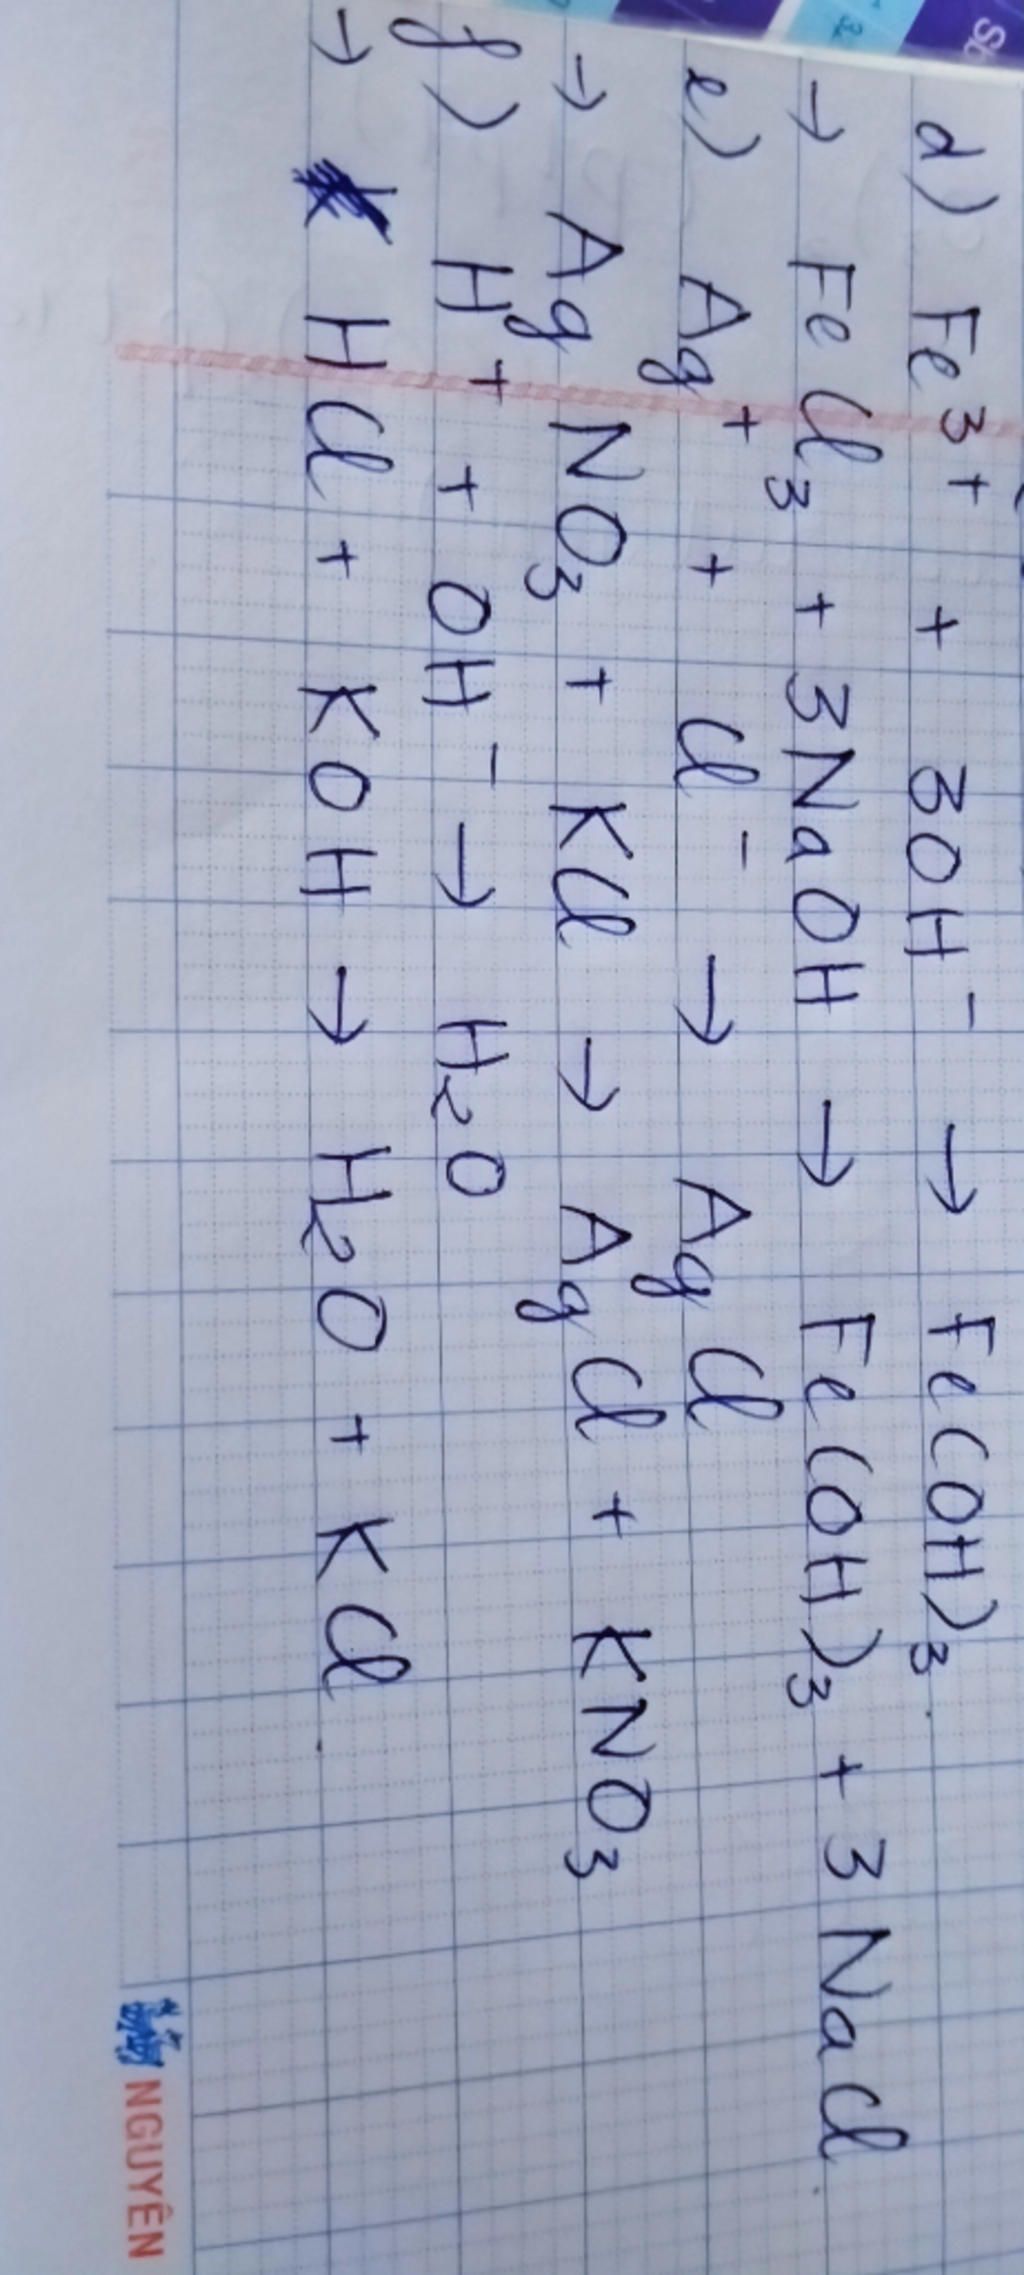 d) Fe³⁺ + 3OH⁻ → Fe(OH)₃.
→ FeCl₃ + 3NaOH → Fe(OH)₃ + 3NaCl.
e) Ag⁺ + Cl⁻ → AgCl
→ AgNO₃ + KCl → AgCl + KNO₃
f) H⁺ + OH⁻ → H₂O
→ HCl + KOH → H₂O + KCl.
NGUYÊN